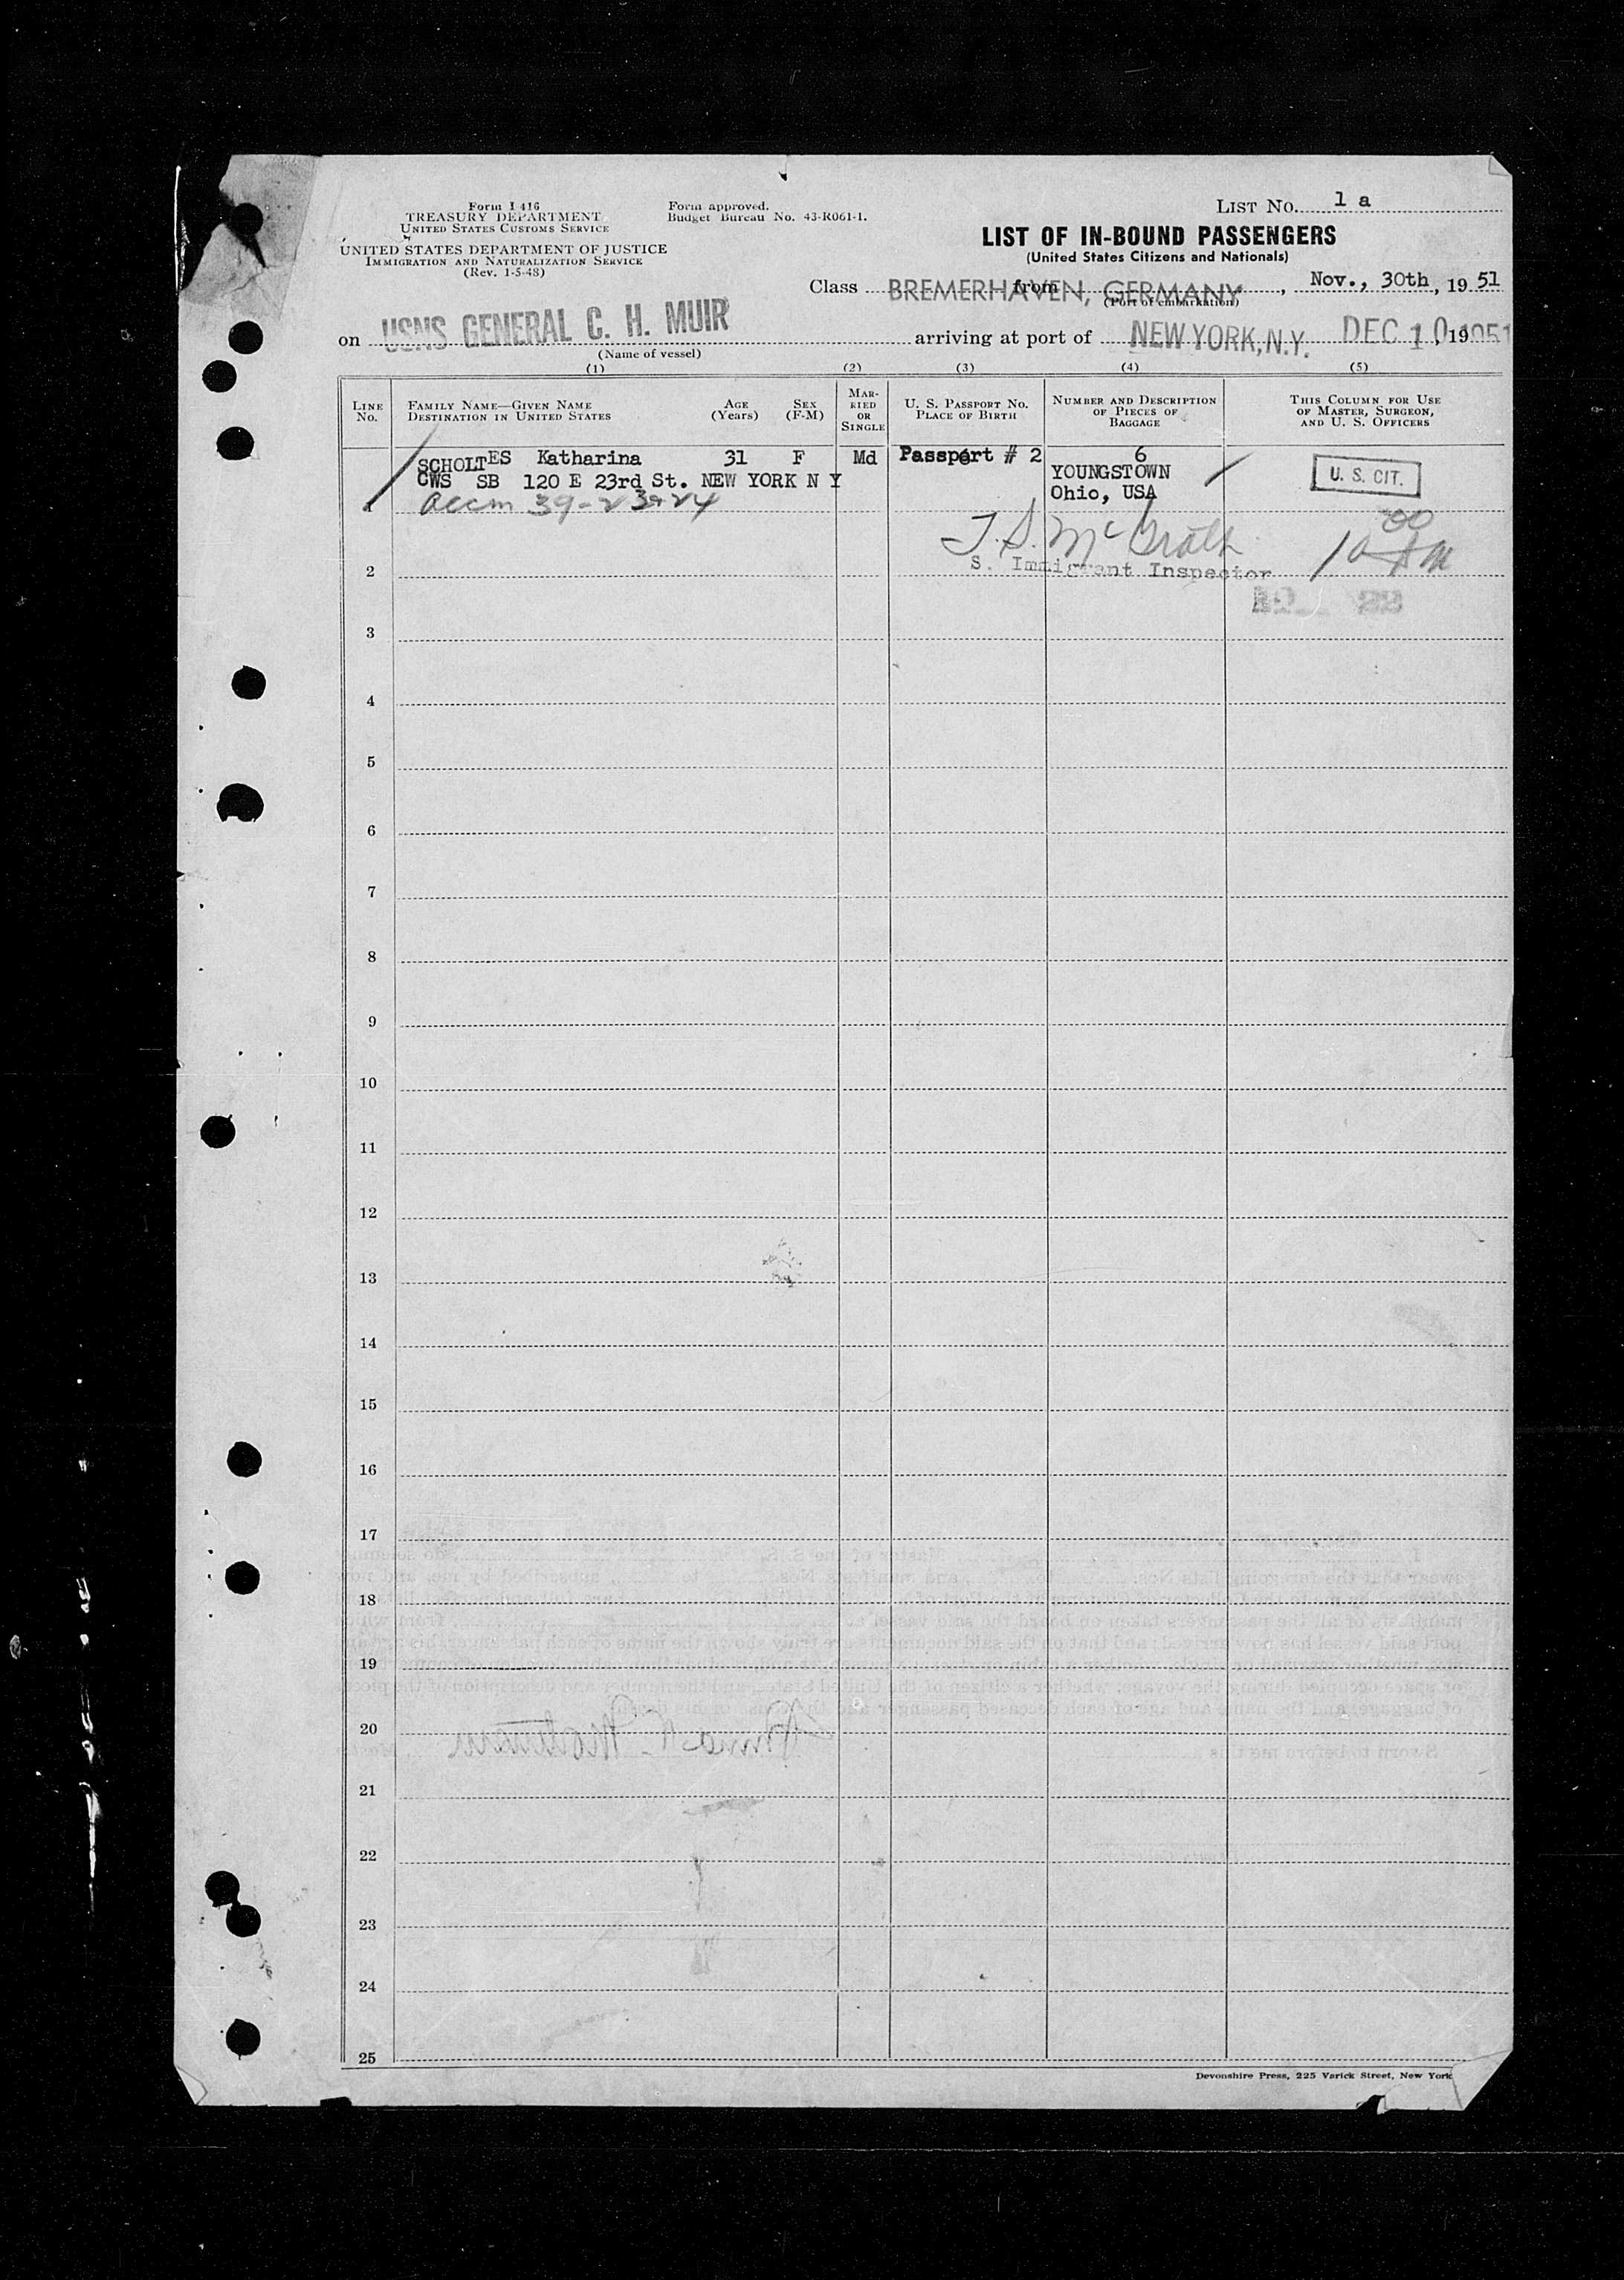 Form I 416
TREASURY DEPARTMENT
UNITED STATES CUSTOMS SERVICE
UNITED STATES DEPARTMENT OF JUSTICE
IMMIGRATION AND NATURALIZATION SERVICE
(Rev. 1-5-48)
Form approved.
Budget Bureau No. 43-R061-1.
LIST NO. 1 a
LIST OF IN-BOUND PASSENGERS
(United States Citizens and Nationals)
Class from BREMERHAVEN, GERMANY, Nov., 30th, 19 51
(Port of embarkation)
on USNS GENERAL C. H. MUIR arriving at port of NEW YORK, N.Y. DEC 10 1951
(Name of vessel)
(1) (2) (3) (4) (5)
LINE NO.
FAMILY NAME—GIVEN NAME
DESTINATION IN UNITED STATES
AGE (Years)
SEX (F-M)
MARRIED OR SINGLE
U. S. PASSPORT NO.
PLACE OF BIRTH
NUMBER AND DESCRIPTION OF PIECES OF BAGGAGE
THIS COLUMN FOR USE OF MASTER, SURGEON, AND U. S. OFFICERS
SCHOLTES Katharina 31 F Md Passport # 2 6
CWS SB 120 E 23rd St. NEW YORK N Y YOUNGSTOWN U. S. CIT.
Ohio, USA
1 39-23+24
T. S. McGrath
S. Immigrant Inspector
10 00 AM
2
3
4
5
6
7
8
9
10
11
12
13
14
15
16
17
18
19
20
21
22
23
24
25
Devonshire Press, 225 Varick Street, New York